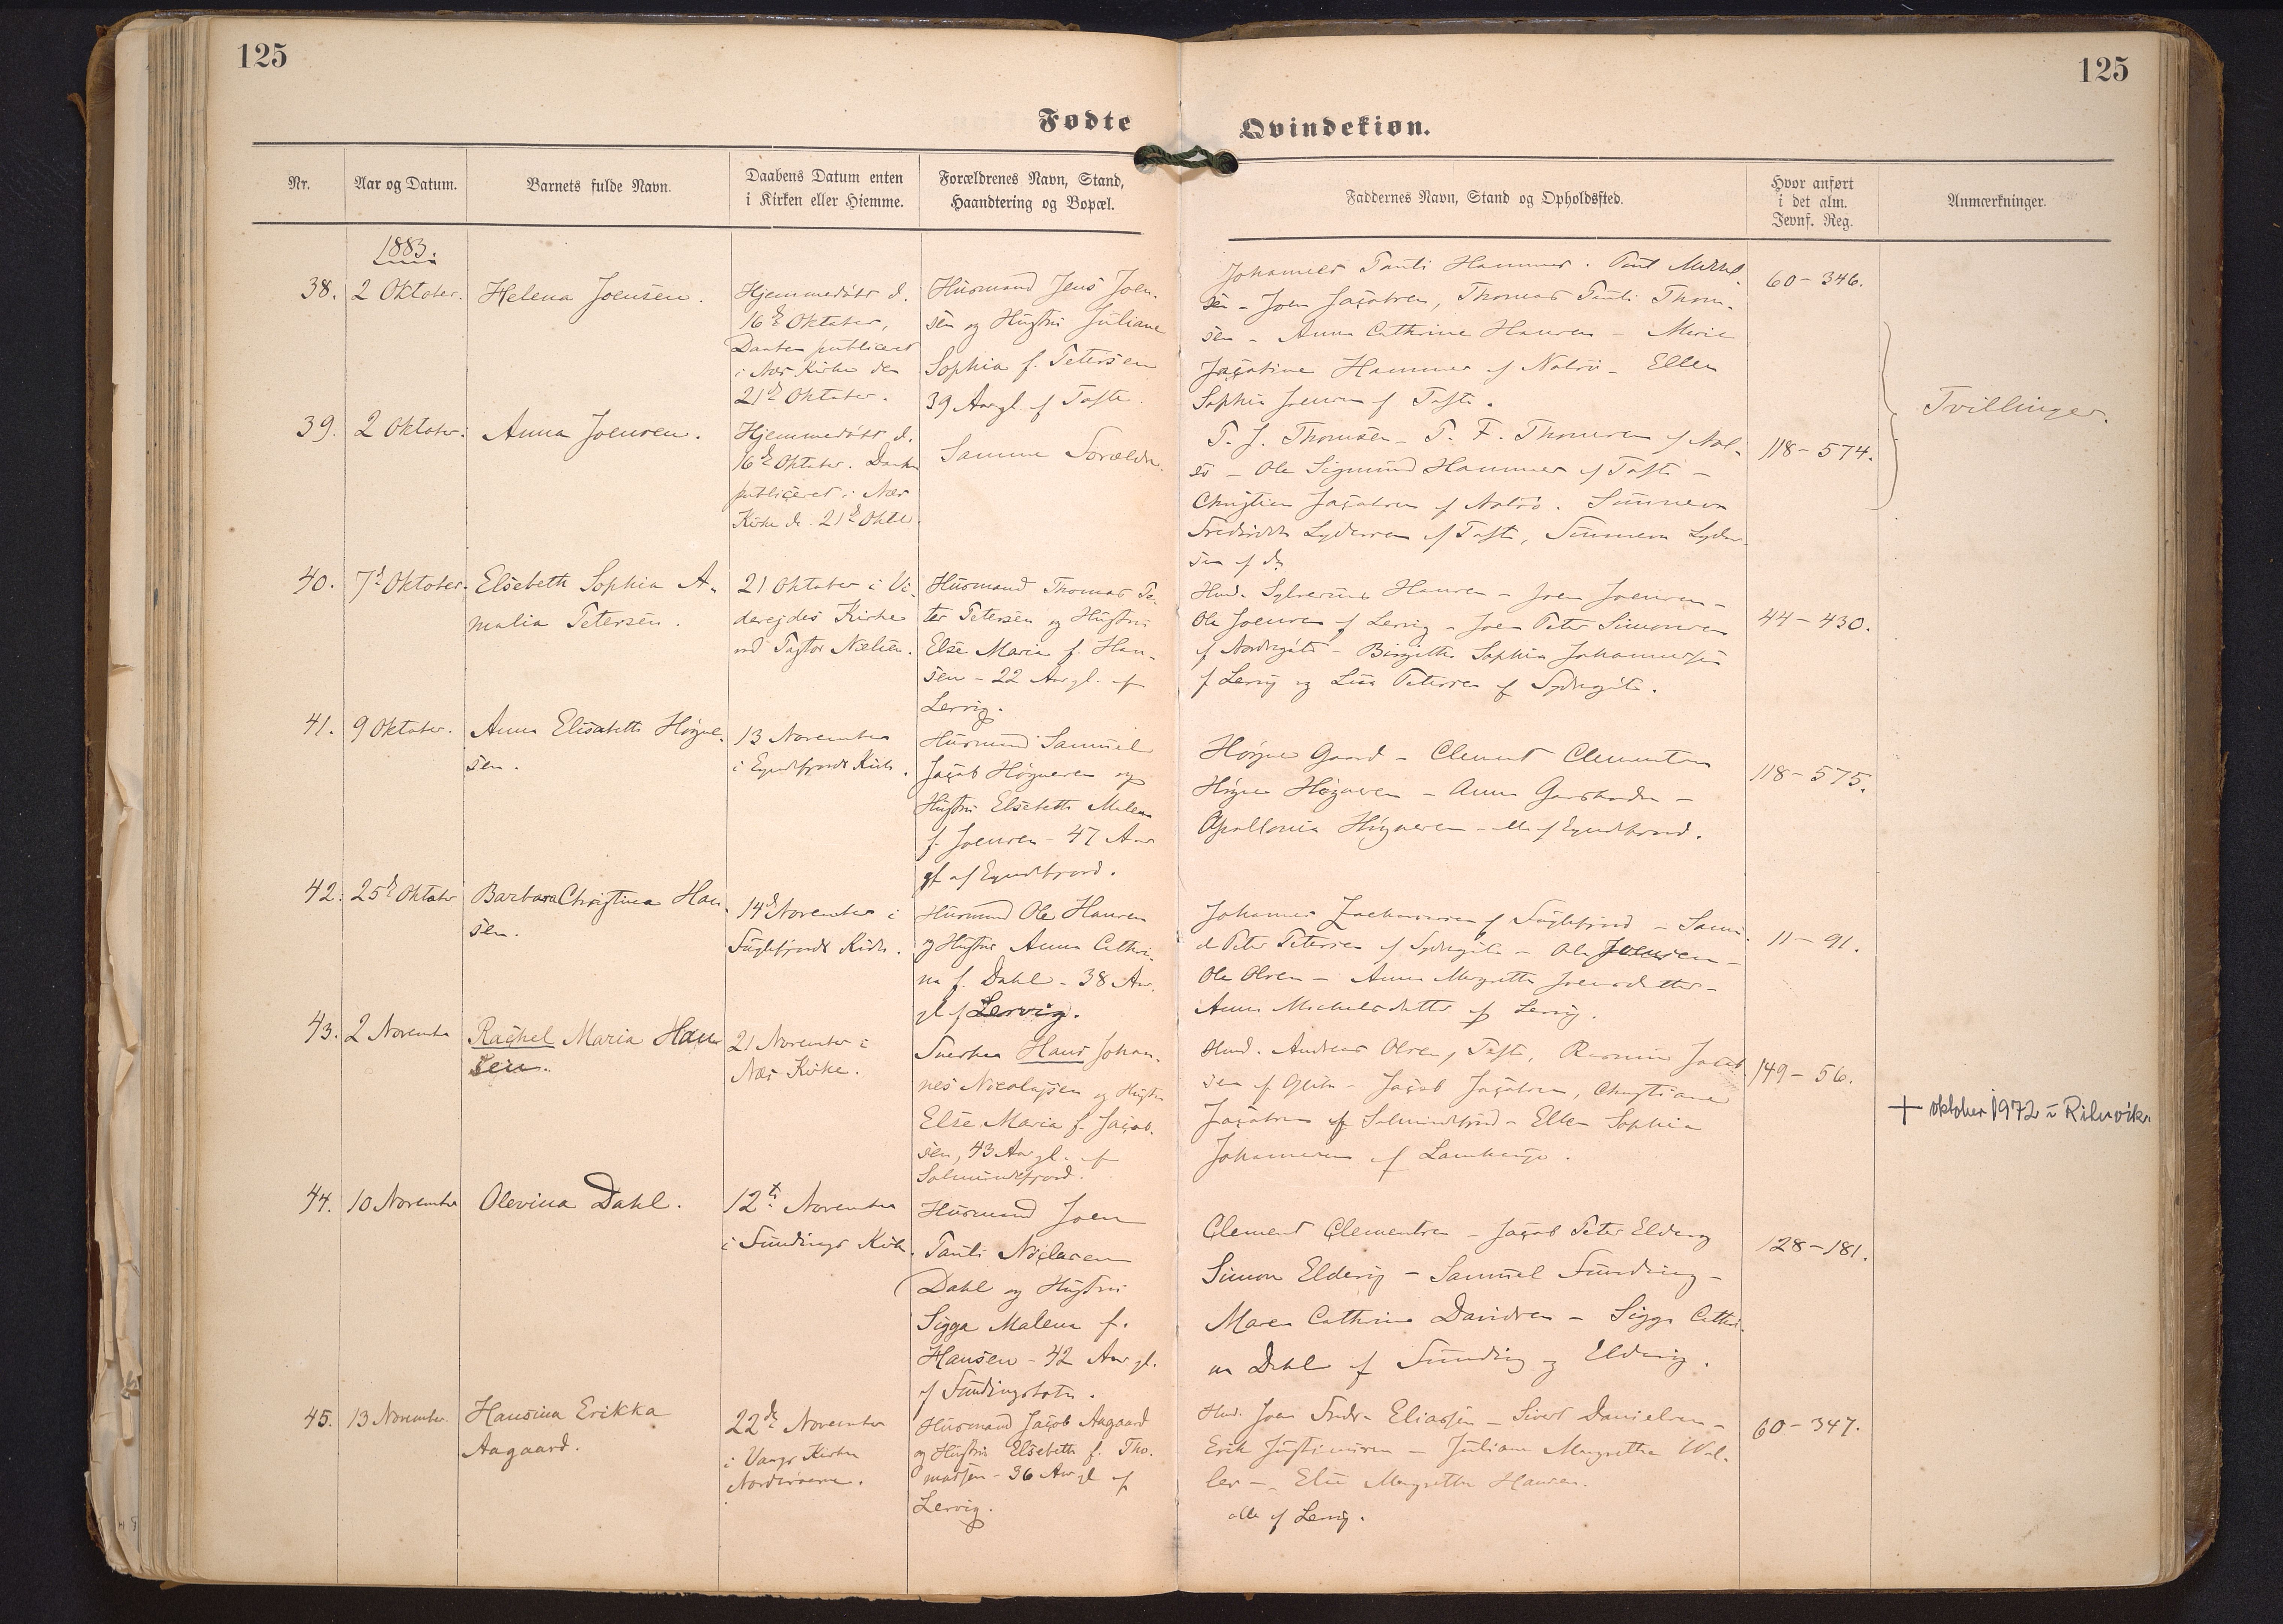 125
125
Fødte
Qvindekiøn.
Nr.
Aar og Datum.
Barnets fulde Navn.
Daabens Datum enten
i Kirken eller Hiemme.
Forældrenes Navn, Stand,
Haandtering og Bopæl.
Faddernes Navn, Stand og Opholdssted.
Hvor anført
i det alm.
Jevnf. Reg.
Anmærkninger.
1883.
38.
2 Oktober.
Helena Joensen.
Hjemmedøbt d.
16de Oktober,
Daaben publiceret
i Nes Kirke den
21de Oktober.
Husmand Jens Joen-
sen og Hustru Juliane
Sophia f. Petersen
39 Aar gl. af Tofte.
Johannes Pauli Hammer. Poul Michel
sen - Joen Jacobsen, Thomas Pauli Thom-
sen - Anna Cathrine Hansen - Marie
Jacobine Hammer af Nolsø - Ellen
Sophia Joensen af Tofte.
60-346.
Tvillinger.
39.
2 Oktober.
Anna Joensen.
Hjemmedøbt d.
16de Oktober. Daaben
publiceret i Nes
Kirke d. 21de Oktbr.
Samme Forældre.
T. J. Thomsen - T. F. Thomsen af Nol-
sø - Ole Sigmund Hammer af Tofte -
Christian Jacobsen af Nolsø. Sunneva
Fredrikke Lydersen af Tofte, Sunneva Lyder
sen af do
118-574.
40.
7de Oktober.
Elsebeth Sophia A-
malia Petersen.
21 Oktober i Vi-
derejdes Kirke
ved Pastor Nielsen.
Husmand Thomas Pe-
ter Petersen og Hustru
Else Maria f. Han-
sen - 22 Aar gl. af
Lervig.
Husm. Sylverius Hansen - Joen Joensen -
Ole Joensen af Lervig - Joen Peter Simonsen
af Nordregøte - Birgitte Sophia Johannessen
af Lervig og Lisa Petersen af Sydregøte.
44-430.
41.
9 Oktober.
Anna Elisabeth Høgne-
sen.
13 November
i Ejndefjords Kirke.
Husmand Samuel
Jacob Høgnesen og
Hustru Elsebeth Malena
f. Joensen - 47 Aar
gl. af Ejndefjord.
Høgne Gaard - Clement Clementsen
Høgne Høgnesen - Anna
Apollonia Høgnesen - alle af Ejndefjord.
118-575.
42.
25de Oktober
Barbara Christina Han-
sen.
14de November i
Fuglefjords Kirke.
Husmand Ole Hansen
og Hustru Anna Cathri-
na f. Dahl - 38 Aar
gl. af Lervig.
Johannes Zachariasen af Fuglefjord - Samu-
el Peter Petersen af Sydregøte - Ole Joensen -
Ole Olsen - Anna Margretha Joensdatter -
Anna Michelsdatter af Lervig.
11-91.
43.
2 November
Rachel Maria Han
sen.
21 November i
Nes Kirke.
Snedker Hans Johan-
nes Nicolajsen og Hustru
Else Maria f. Jacob-
sen, 43 Aar gl. af
Solmundefjord.
Husm. Andreas Olsen, Tofte, Rasmus Jacob-
sen af Glibre - Jacob Jacobsen, Christiane
Jacobsen af Solmundefjord - Ellen Sophia
Johannesen af Lambareje.
149-56.
+ oktober 1972 i Rituvíkr
44.
10 November
Olevina Dahl.
12te November
i Fundings Kirke.
Husmand Joen
Pauli Niclasen
Dahl og Hustru
Sigga Malena f.
Hansen - 42 Aar gl.
af Fundingsbotn.
Clement Clementsen - Jacob Peter Eldevig
Simon Eldevig - Samuel Funding -
Maren Cathrine Davidsen - Sigga Cathri-
na Dahl af Funding og Eldevig.
128-181.
45.
13 November.
Hansina Erikka
Aagaard.
22de November
i Vaags Kirke
Norderøerne.
Husmand Jacob Aagaard
og Hustru Elsebeth f. Tho-
massen - 36 Aar gl. af
Lervig.
Husm. Joen Fredr. Eliassen - Sivert Danielsen -
Erik Justinussen - Juliane Margretha Wal-
ler - Elsie Margretha Hansen.
alle af Lervig.
60-347.